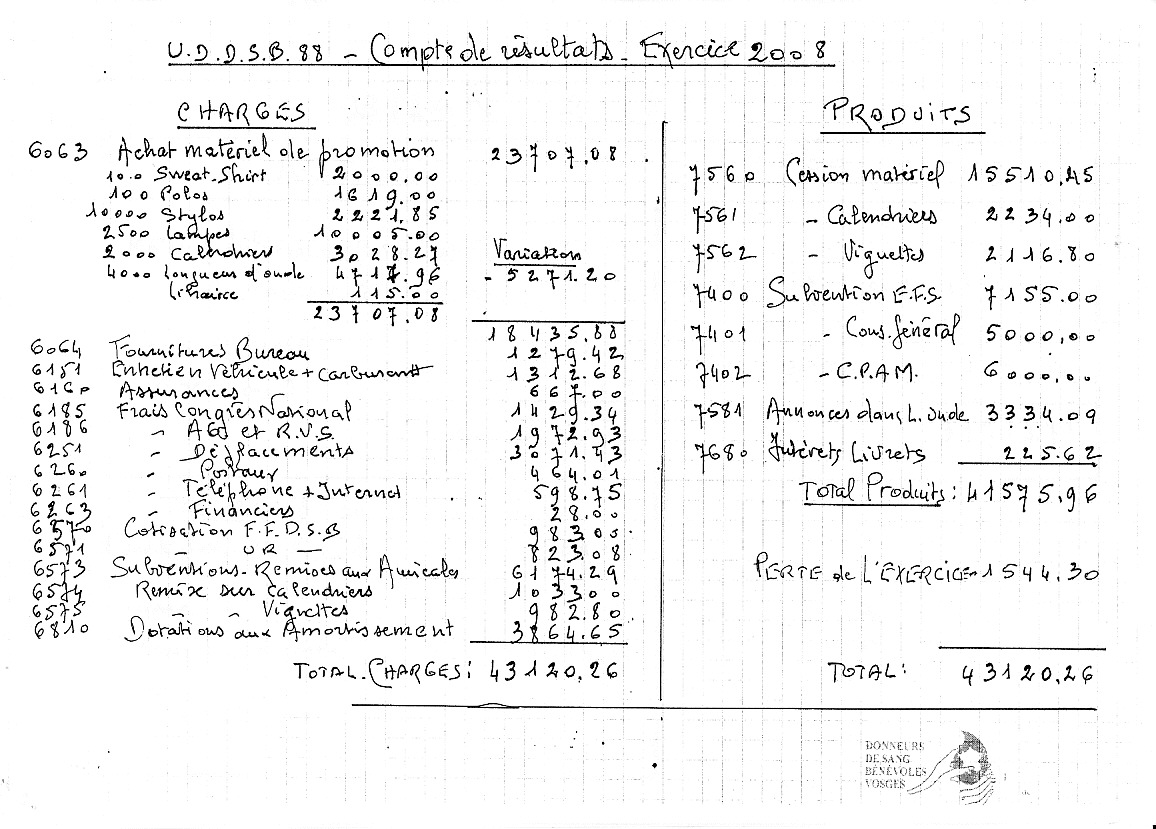 U.D.D.S.B. 88 - Compte de résultats - Exercice 2008
CHARGES
6063 Achat matériel de promotion 23707.08
100 Sweat-Shirt 2000.00
100 Polos 1619.00
10000 Stylos 2221.85
2500 Lampes 10005.00
2000 Calendriers 3028.27
4000 Longueur d'onde 4717.96
115.00
23707.08
Variation
- 5271.20
18435.88
6064 Fournitures Bureau 1279.42
6151 Entretien Véhicule + Carburant 1312.68
6160 Assurances 667.00
6185 Frais Congrès National 1429.34
6186 - AG et R.V.S. 1972.93
6251 - Déplacements 3071.43
6260 - Postaux 464.01
6261 - Téléphone + Internet 598.75
6263 - Financiers 28.00
6570 Cotisation F.F.D.S.B 983.00
6571 - UR - 823.08
6573 Subventions - Remises aux Amicales 6174.29
6574 Remise sur Calendriers 1033.00
6575 - - Vignettes 982.80
6810 Dotations aux Amortissement 3864.65
TOTAL CHARGES : 43120,26
PRODUITS
7560 Cession matériel 15510,45
7561 - Calendriers 2234.00
7562 - Vignettes 2116.80
7400 Subvention E.F.S. 7155.00
7401 - Cons. général 5000,00
7402 - C.P.A.M. 6000,00
7581 Annonces dans L. onde 3334.09
7680 Intérets Livrets 225.62
Total Produits : 41575,96
PERTE de L'EXERCICE 1544.30
TOTAL : 43120,26
DONNEURS
DE SANG
BÉNÉVOLES
VOSGES